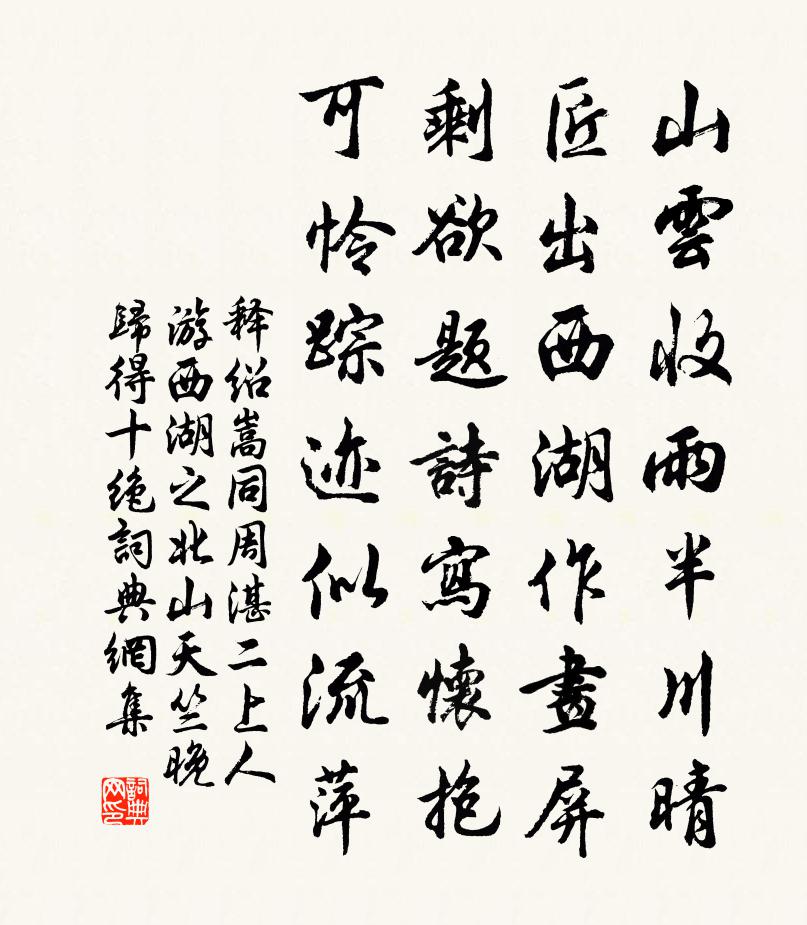 山雲收雨半川晴
匠出西湖作畫屏
剩欲題詩寫懷抱
可怜踪迹似流萍
释绍嵩同周湛二上人
游西湖之北山天竺晚
歸得十绝詞典網集
詞典网印